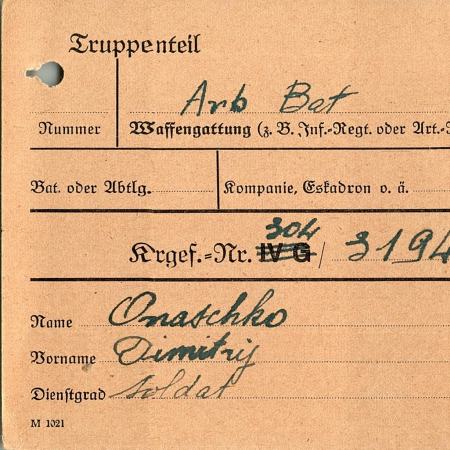 Truppenteil
Arb Bat
Nummer Waffengattung (z. B. Inf.-Regt. oder Art.-
Bat. oder Abtlg. Kompanie, Eskadron o. ä.
304
Krgef.-Nr. IV G / 3194
Name Onaschko
Vorname Dimitrij
Dienstgrad Soldat
M 1021